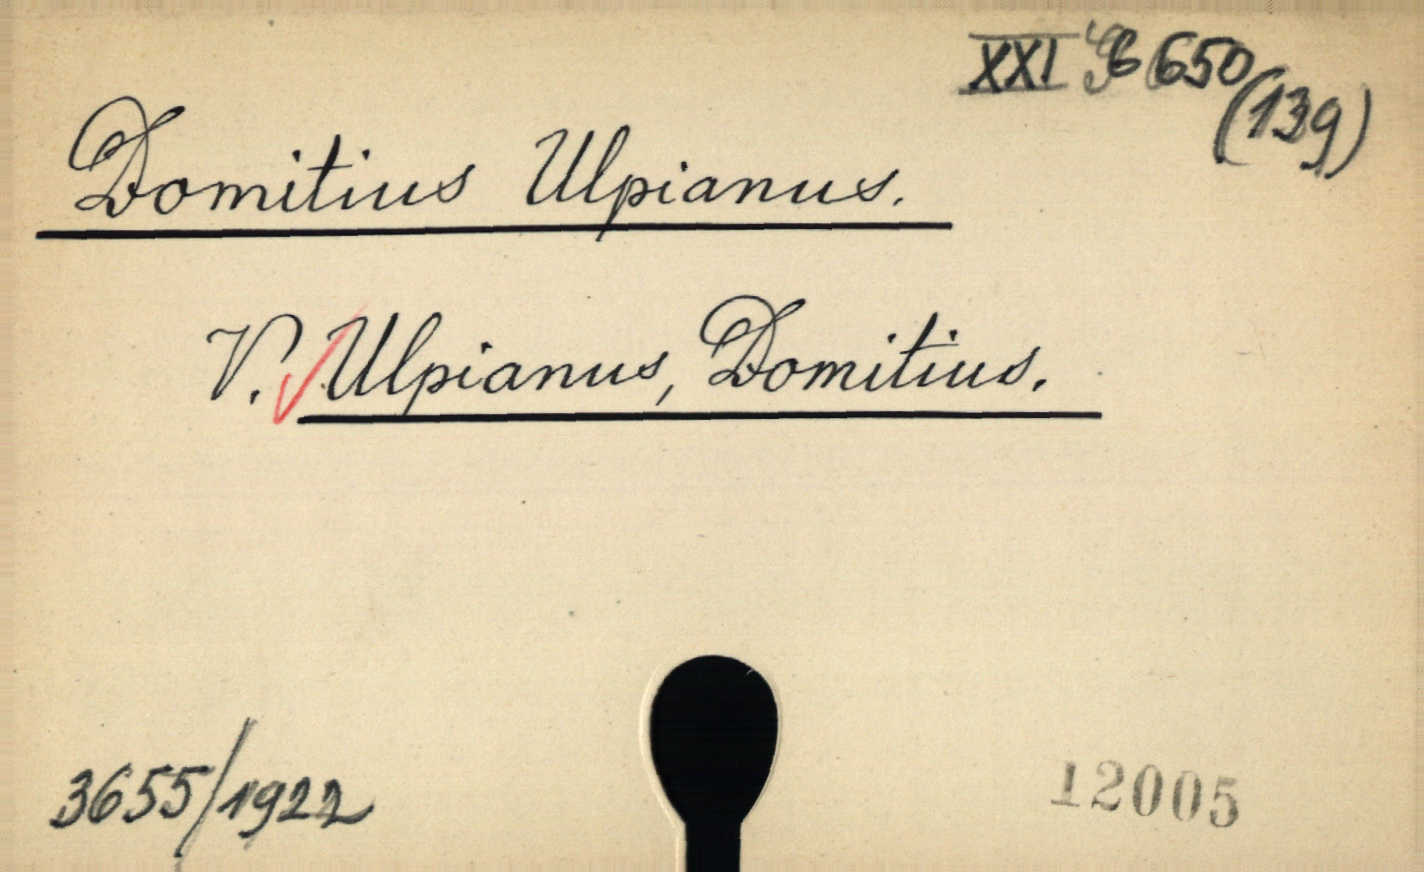 XXI 650
(139)
Domitius Ulpianus.
V. Ulpianus, Domitius.
3655/1922
12005